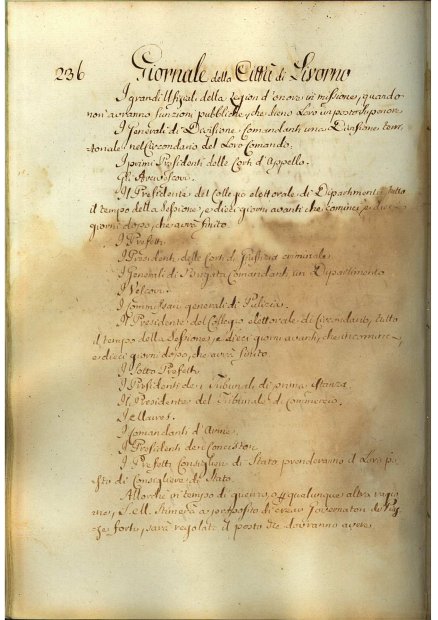 236 Giornale della Città di Livorno
I grandi Ufiziali della Legion d'onore in missione, quando
non avranno funzioni pubbliche, che dieno Loro un posto superiore
I Generali di Divisione Comandanti una Divisione terri-
toriale nel Circondario del Loro Comando.
I primi Presidenti delle Corti d'Appello.
Gli Arcivescovi.
Il Presidente del Collegio elettorale di Dipartimento tutto
il tempo della Sessione, e dieci giorni avanti che cominci, e dieci
giorni dopo, che avrà finito.
I Prefetti
I Presidenti delle Corti di Giustizia criminale.
I Generali di Brigata Comandanti un Dipartimento
I Vescovi.
I Commissari generali di Polizia.
Il Presidente del Collegio elettorale di Circondario, tutto
il tempo della Sessione, e dieci giorni avanti, che cominci,
e dieci giorni dopo, che avrà finito.
I Sotto Prefetti
I Presidenti dei Tribunali di prima Istanza
Il Presidente del Tribunale di Commercio.
I Maires.
I Comandanti d'Armi.
I Presidenti dei Concistori
I Prefetti Consiglieri di Stato prenderanno il Loro po-
sto di Consigliere di Stato.
Allorchè in tempo di guerra, o per qualunque altra ragio-
ne, S. M. stimerà a proposito di creare Governatori di Piaz-
ze forti, sarà regolato il posto che dovranno avere.